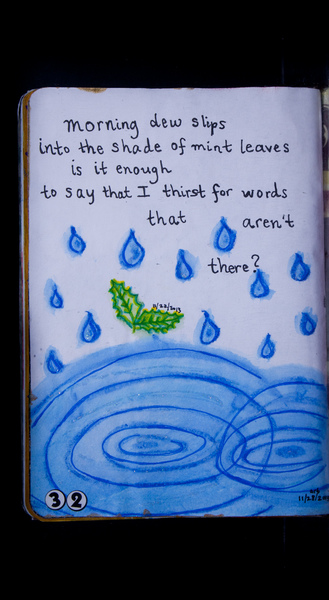 Morning dew slips
into the shade of mint leaves
is it enough
to say that I thirst for words
that aren't
there?
32